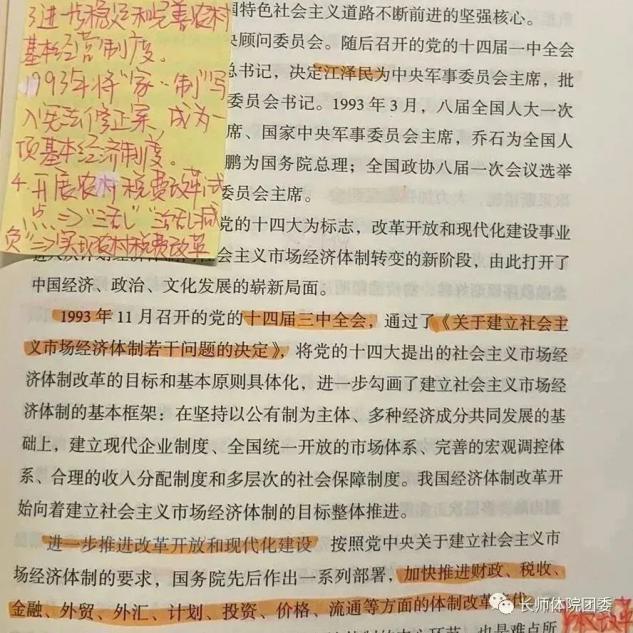 3进一步稳定和完善农村
基本经营制度。
1993年将"家·制"写
入宪法修正案 成为一
项基本经济制度。
4.开展农村税费改革试
点 ⇒ "三乱" 治乱减
负 ⇒ 实现农村税费改革
国特色社会主义道路不断前进的坚强核心。
央顾问委员会。随后召开的党的十四届一中全会
总书记,决定江泽民为中央军事委员会主席,批
委员会书记。1993 年 3 月,八届全国人大一次
席、国家中央军事委员会主席,乔石为全国人
鹏为国务院总理;全国政协八届一次会议选举
委员会主席。
党的十四大为标志,改革开放和现代化建设事业
会主义市场经济体制转变的新阶段,由此打开了
中国经济、政治、文化发展的崭新局面。
1993 年 11 月召开的党的十四届三中全会,通过了《关于建立社会主
义市场经济体制若干问题的决定》,将党的十四大提出的社会主义市场经
济体制改革的目标和基本原则具体化,进一步勾画了建立社会主义市场经
济体制的基本框架:在坚持以公有制为主体、多种经济成分共同发展的基
础上,建立现代企业制度、全国统一开放的市场体系、完善的宏观调控体
系、合理的收入分配制度和多层次的社会保障制度。我国经济体制改革开
始向着建立社会主义市场经济体制的目标整体推进。
进一步推进改革开放和现代化建设 按照党中央关于建立社会主义市
场经济体制的要求,国务院先后作出一系列部署,加快推进财政、税收、
金融、外贸、外汇、计划、投资、价格、流通等方面的体制改革
长师体院团委